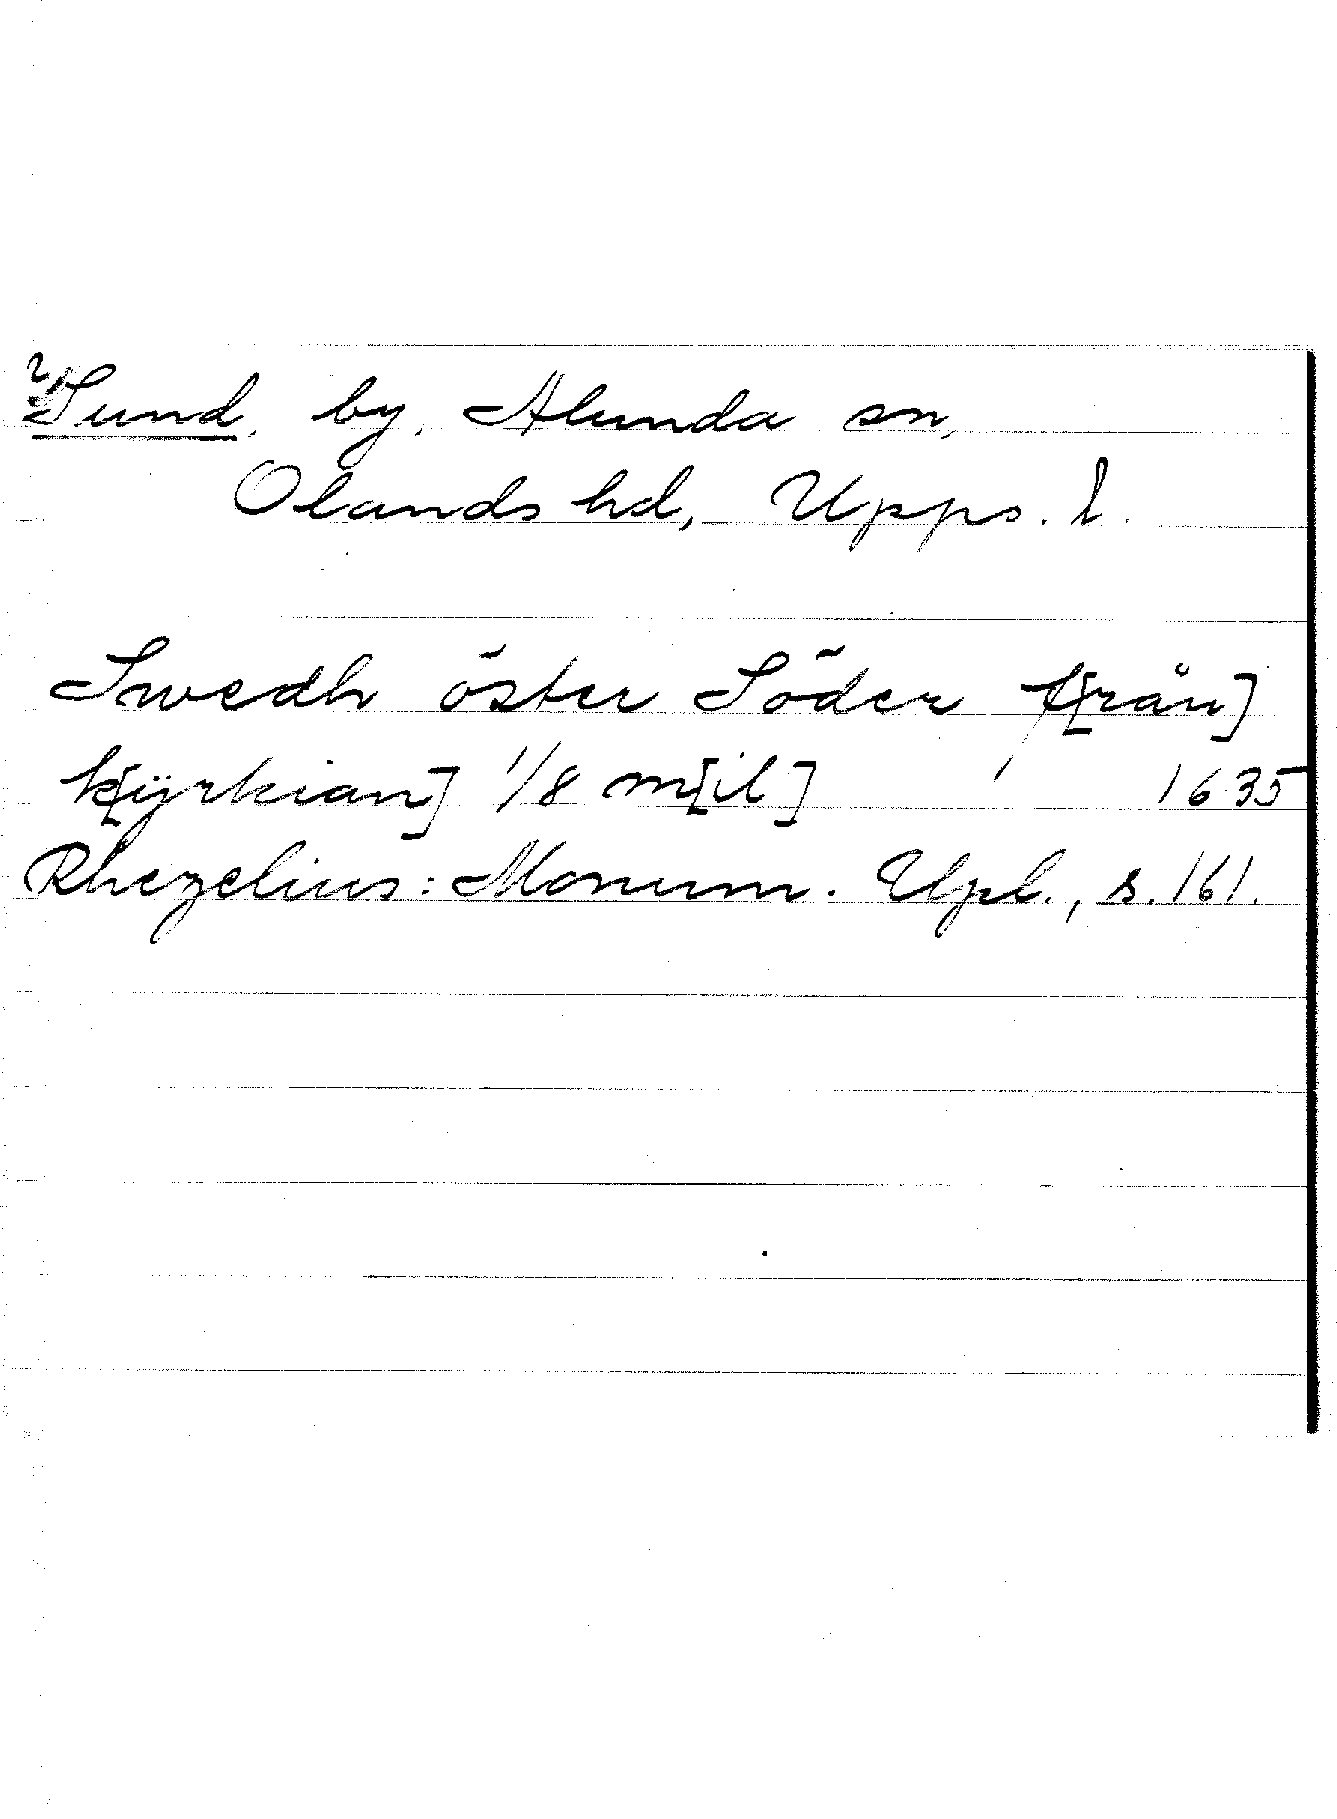 Sund, by, Alunda sn,
Olands hd, Upps. l.
Swedh öster Söder f[rån]
k[ÿrkian] 1/8 m[il] 1635
Rhezelius: Monum. Upl., s. 161.